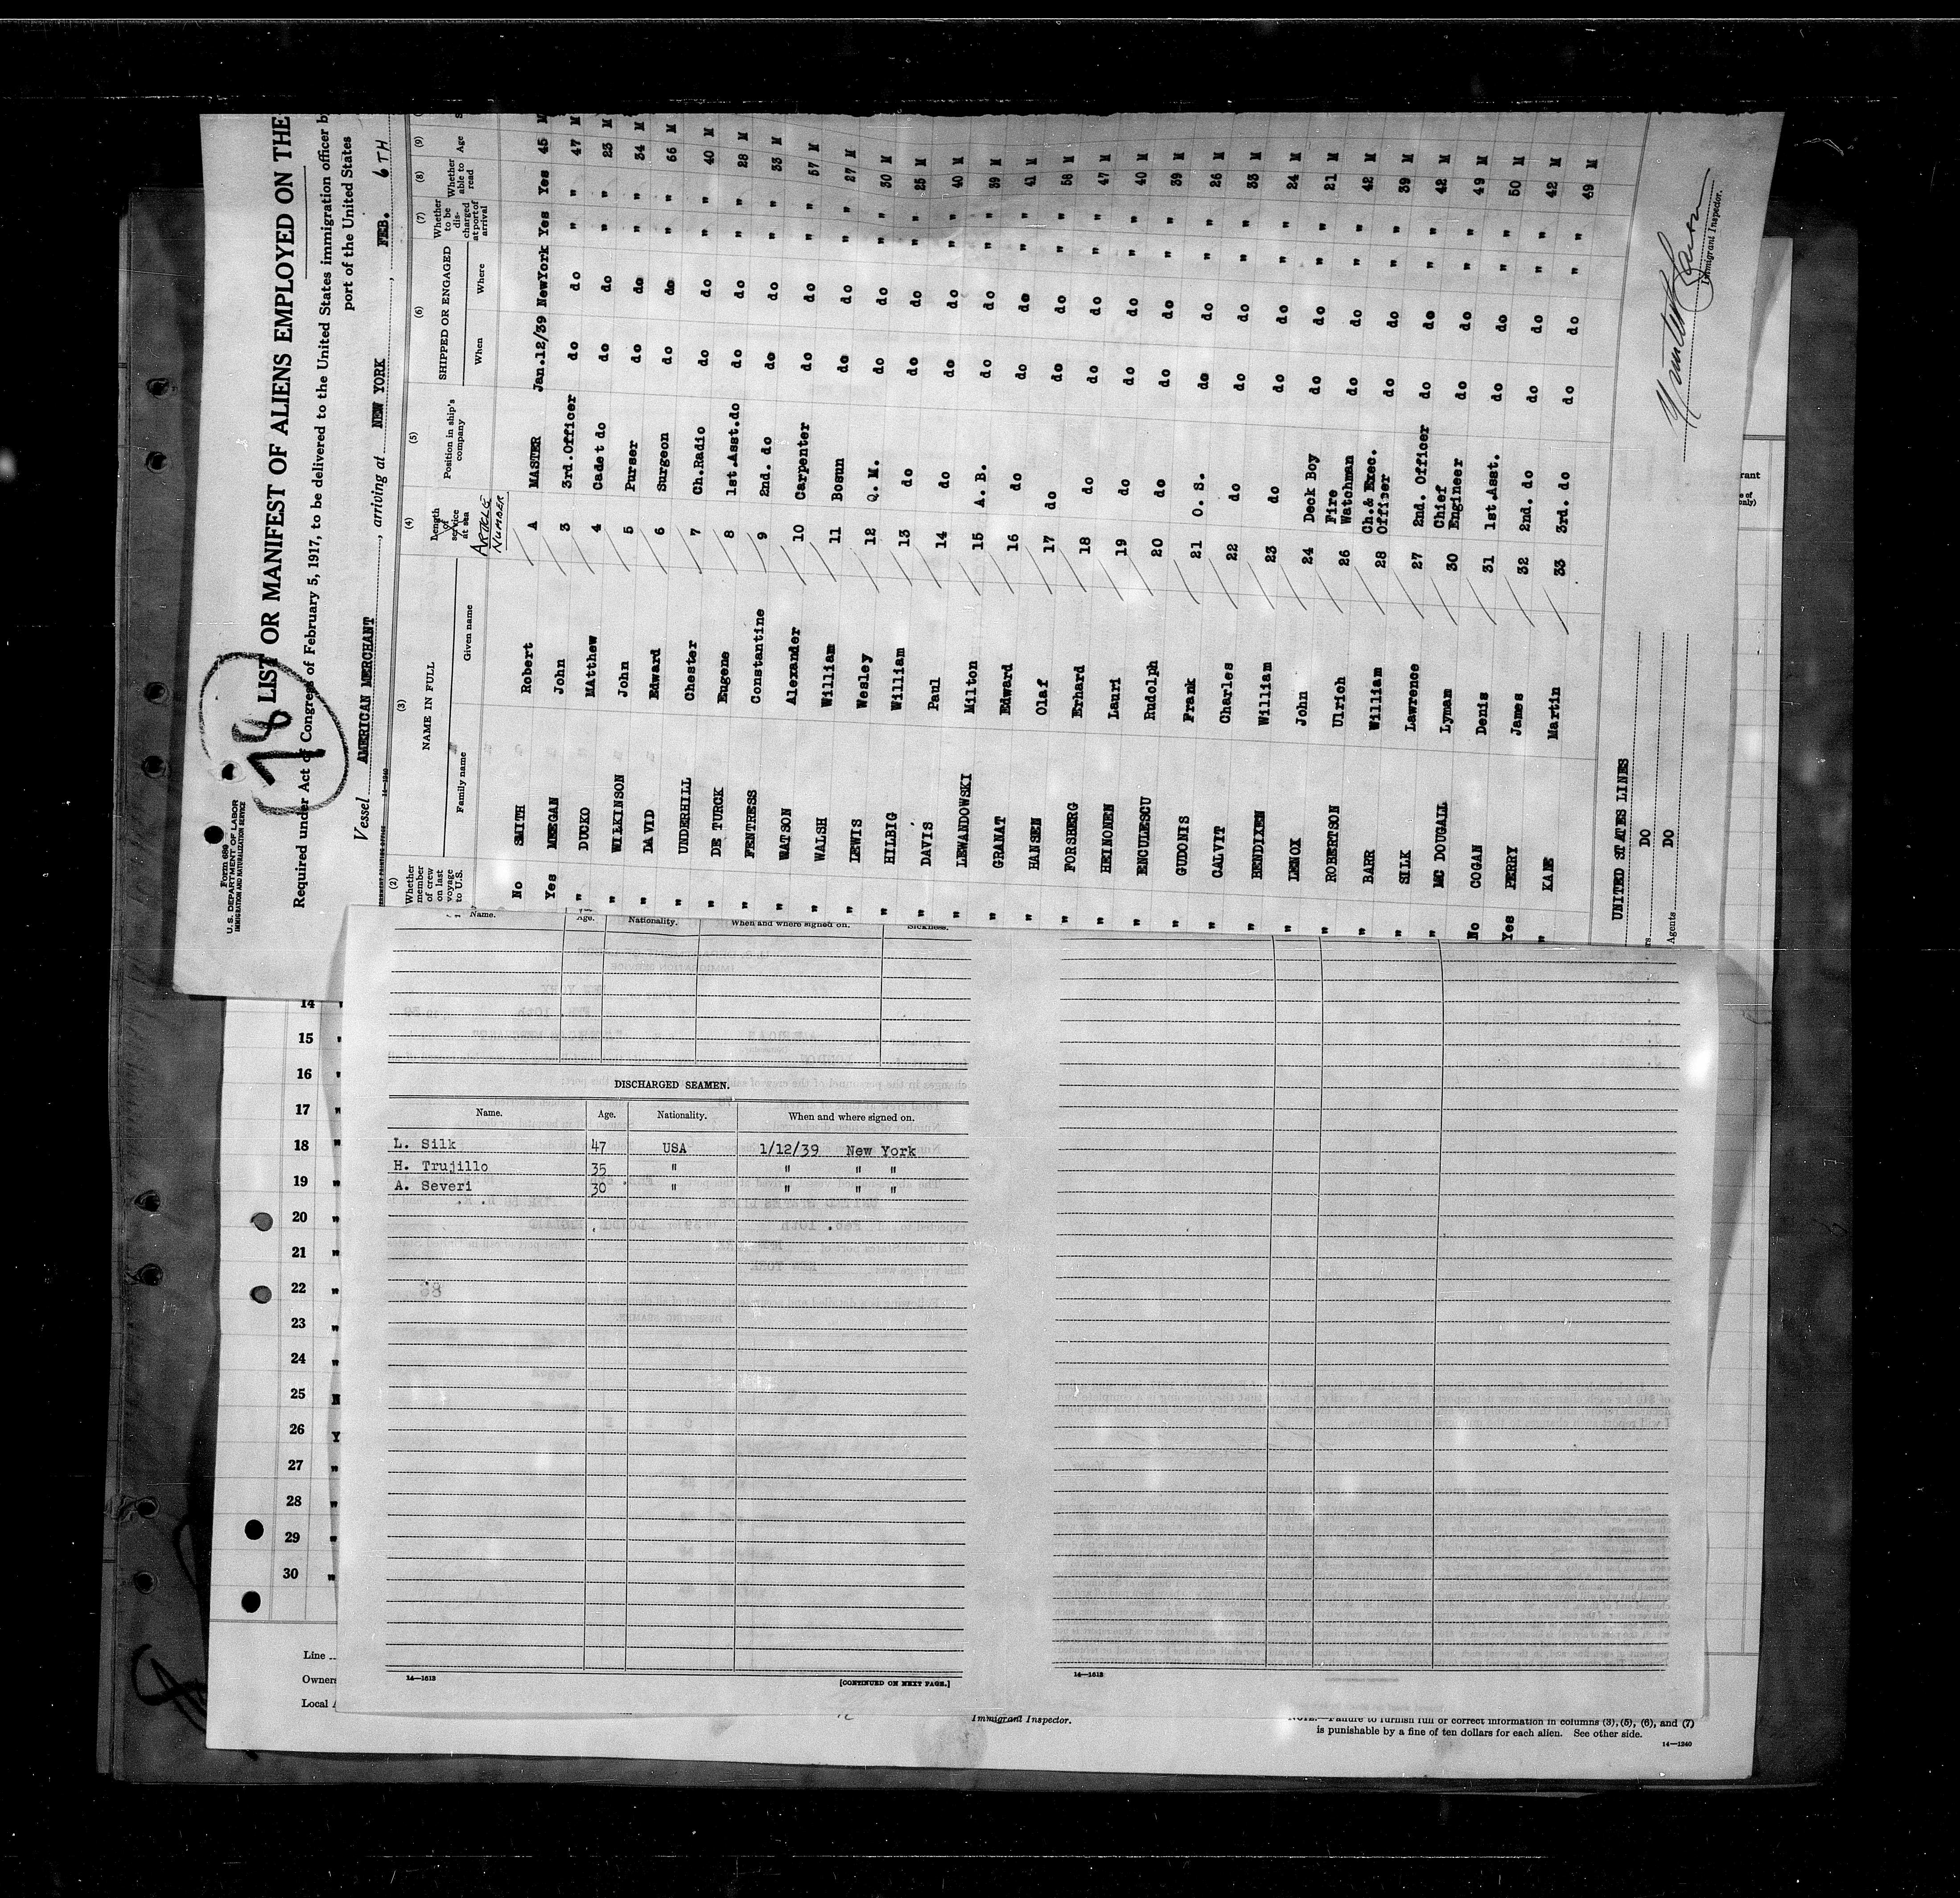 Form 689
U. S. DEPARTMENT OF LABOR
IMMIGRATION AND NATURALIZATION SERVICE
78
LIST OR MANIFEST OF ALIENS EMPLOYED ON THE
Required under Act of Congress of February 5, 1917, to be delivered to the United States immigration officer
port of the United States
Vessel AMERICAN MERCHANT, arriving at NEW YORK, FEB. 6TH
14—1240
(2) (3) (4) (5) (6) (7) (8) (9)
Whether member of crew on last voyage to U.S. NAME IN FULL Length of service at sea Position in ship's company SHIPPED OR ENGAGED Whether to be discharged at port of arrival Whether able to read Age
Family name Given name ARTICLE NUMBER When Where
No SMITH Robert A MASTER Jan.12/39 NewYork Yes Yes 45 M
Yes MEEGAN John 3 3rd.Officer do do " " 47 M
" DUCKO MAtthew 4 Cadet do do do " " 23 M
" WILKINSON John 5 Purser do do " " 34 M
" DAVID Edward 6 Surgeon do do " " 66 M
" UNDERHILL Chester 7 Ch.Radio do do " " 40 M
" DE TURCK Eugene 8 1st.Asst.do do do " " 28 M
" FENTRESS Constantine 9 2nd. do do do " " 33 M
" WATSON Alexander 10 Carpenter do do " " 57 M
" WALSH William 11 Bosun do do " " 27 M
" LEWIS Wesley 12 Q.M. do do " " 30 M
" HILBIG William 13 do do do " " 25 M
" DAVIS Paul 14 do do do " " 40 M
" LEWANDOWSKI Milton 15 A.B. do do " " 39 M
" GRANAT Edward 16 do do do " " 41 M
" HANSEN Olaf 17 do do do " " 58 M
" FORSBERG Erhard 18 do do do " " 47 M
" HEINONEN Lauri 19 do do do " " 40 M
" ENCULESCU Rudolph 20 do do do " " 39 M
" GUDONIS Frank 21 O.S. do do " " 26 M
" CALVIT Charles 22 do do do " " 33 M
" BENDIXEN William 23 do do do " " 24 M
" LENOX John 24 Deck Boy do do " " 21 M
" ROBERTSON Ulrich 26 Fire Watchman do do " " 42 M
" BARR William 28 Ch.& Exec. Officer do do " " 39 M
" SILK Lawrence 27 2nd. Officer do do " " 42 M
" MC DOUGALL Lyman 30 Chief Engineer do do " " 49 M
No COGAN Denis 31 1st.Asst. do do " " 50 M
Yes PERRY James 32 2nd. do do do " " 42 M
" KANE Martin 33 3rd. do do do " " 49 M
UNITED STATES LINES
DO
Agents DO
Immigrant Inspector.
Name. Age. Nationality. When and where signed on. Sickness.
DISCHARGED SEAMEN.
Name. Age. Nationality. When and where signed on.
L. Silk 47 USA 1/12/39 New York
H. Trujillo 35 " " " "
A. Severi 30 " " " "
14—1613
[CONTINUED ON NEXT PAGE.]
14—1613
14 "
15 "
16 "
17 "
18 "
19 "
20 "
21 "
22 "
23 "
24 "
25
26 Y
27 "
28 "
29 "
30 "
Line
Owners
Local
Immigrant Inspector.
NOTE.—Failure to furnish full or correct information in columns (3), (5), (6), and (7)
is punishable by a fine of ten dollars for each alien. See other side.
14—1240